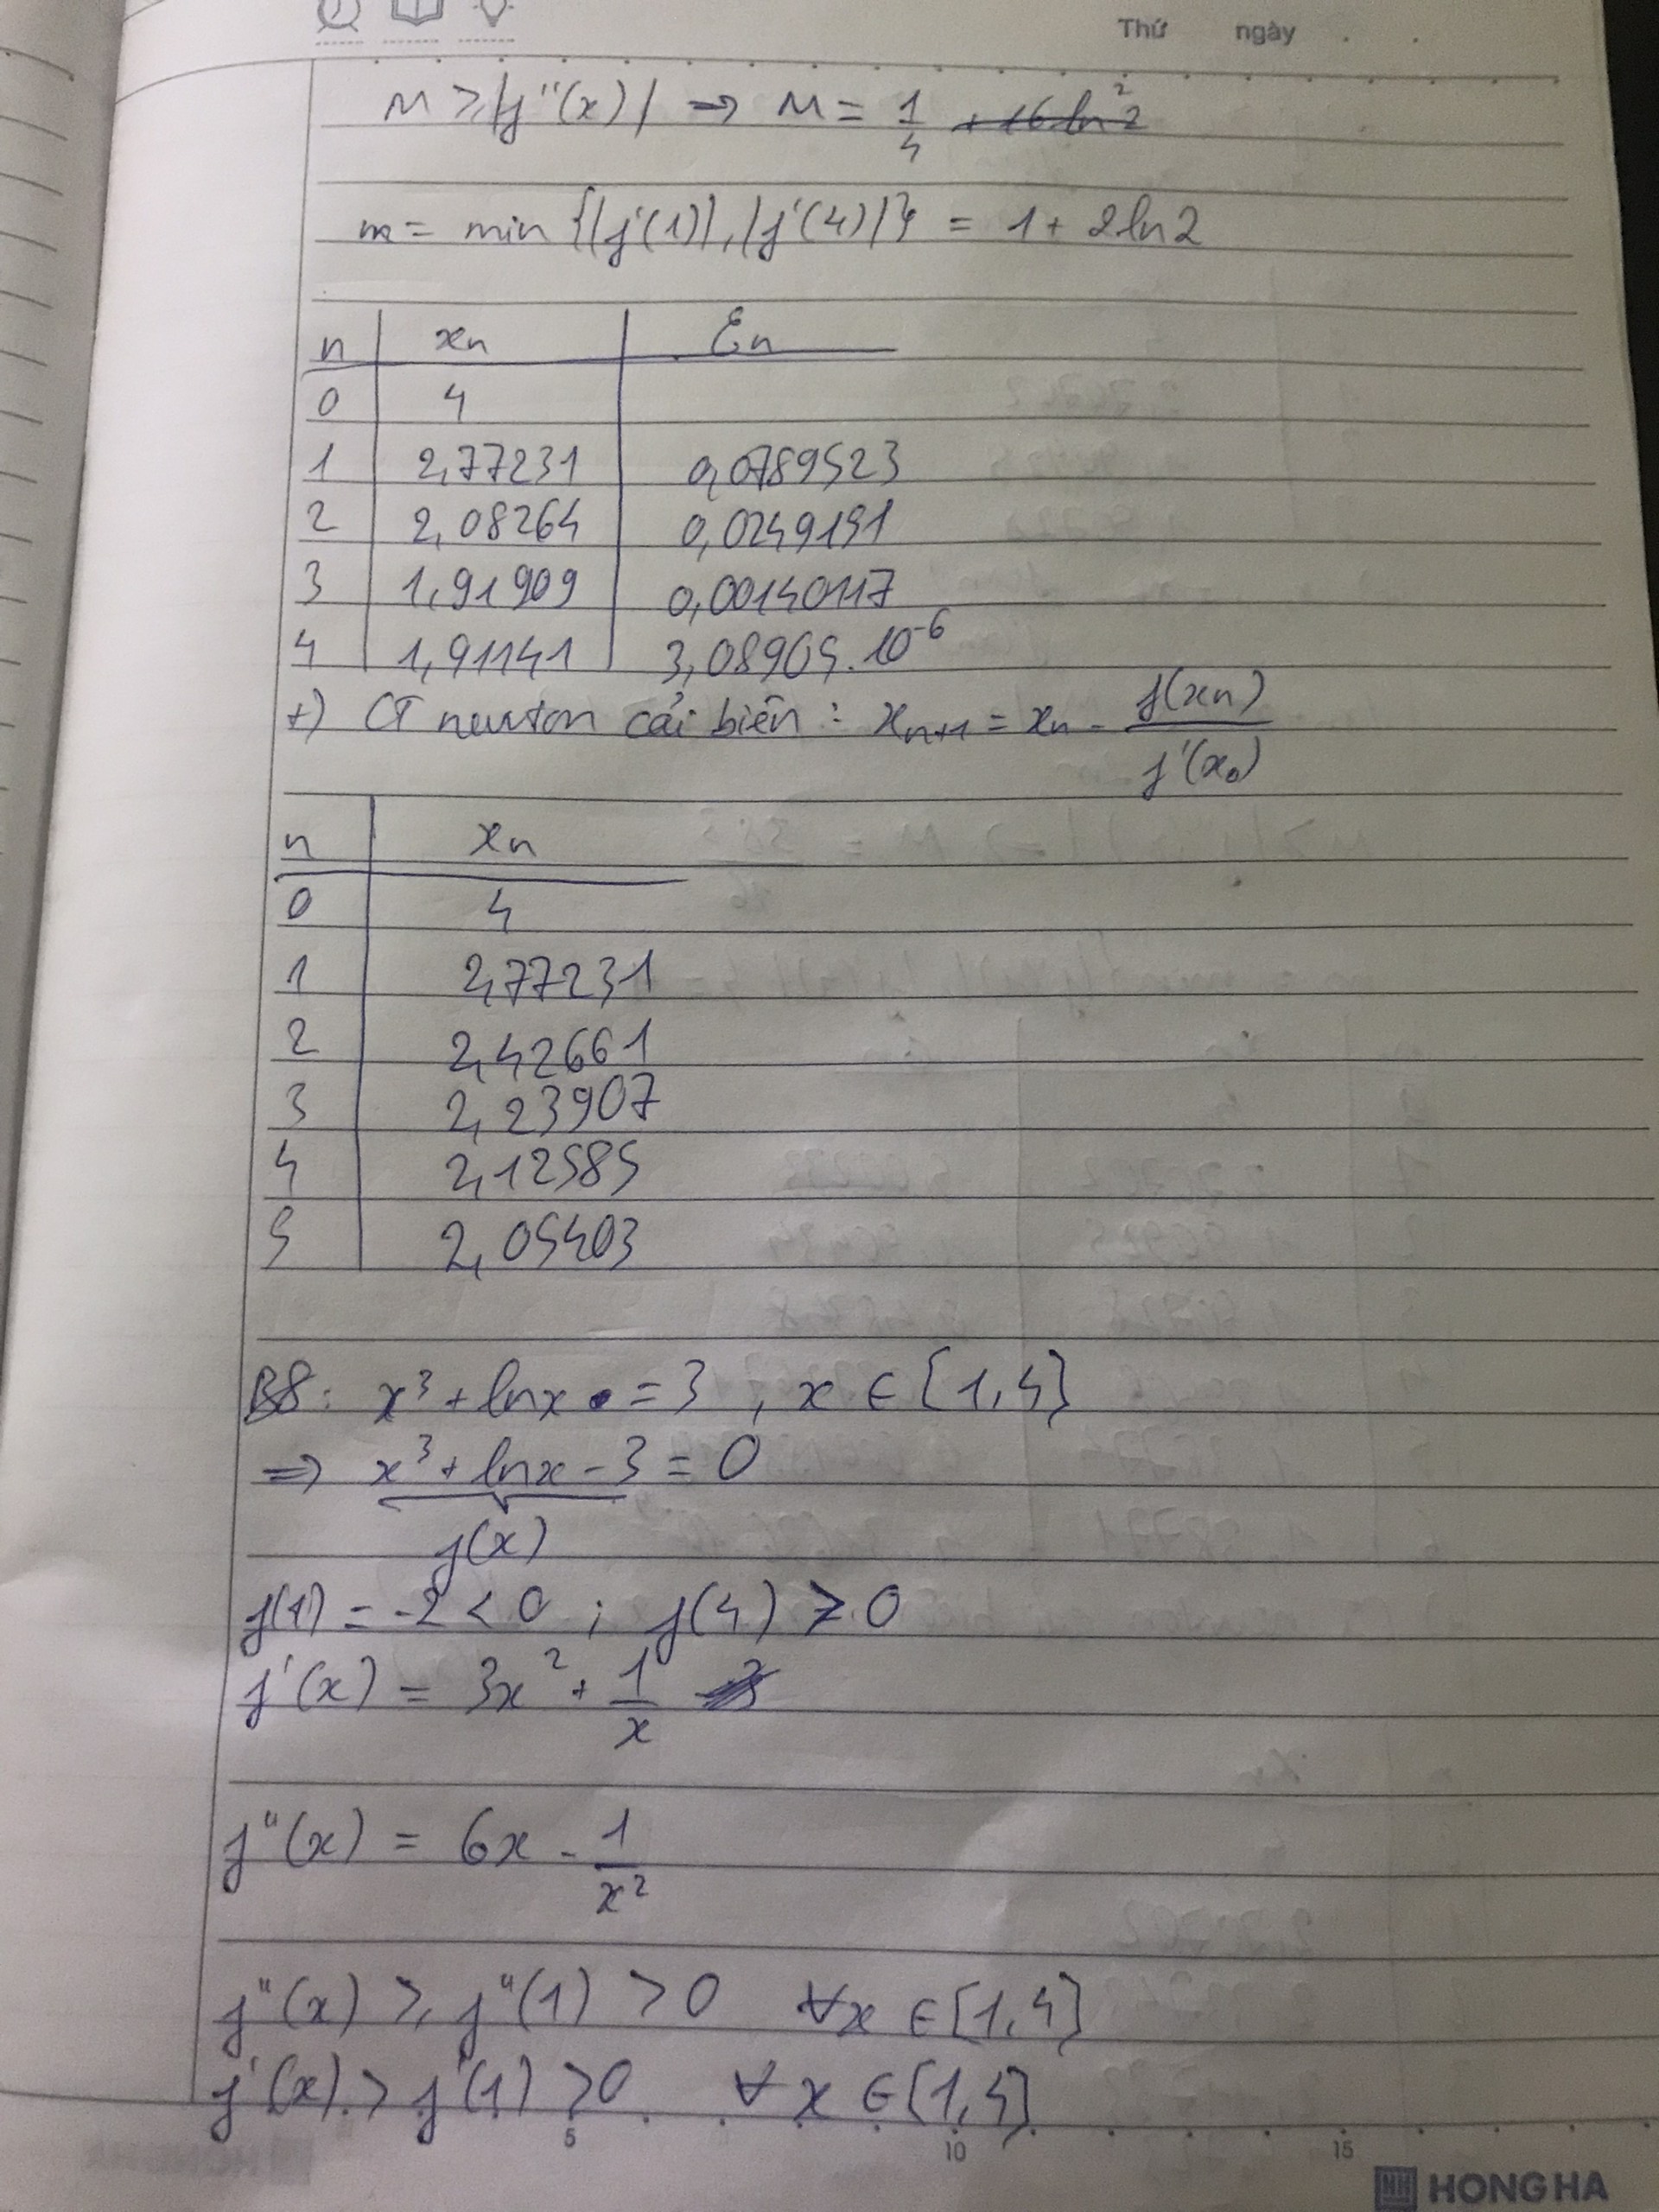 Thứ ngày
M ≥ |f''(x)| => M = 1/4 + 16 ln² 2
m = min {|f'(1)|, |f'(4)|} = 1 + 2ln2
n xn εn
0 4
1 2,77231 0,0789523
2 2,08264 0,0249191
3 1,91909 0,00140117
4 1,91141 3,08905.10⁻⁶
+) CT newton cải biên : xₙ₊₁ = xₙ - f(xₙ)/f'(x₀)
n xn
0 4
1 2,77231
2 2,42661
3 2,23907
4 2,12585
5 2,05403
B8: x³ + lnx = 3 , x ∈ [1,4]
=> x³ + lnx - 3 = 0
f(x)
f(1) = -2 < 0 ; f(4) > 0
f'(x) = 3x² + 1/x
f''(x) = 6x - 1/x²
f''(x) ≥ f''(1) > 0 ∀x ∈ [1,4]
f'(x) > f'(1) > 0 ∀x ∈ [1,4]
5 10 15
HH HONG HA